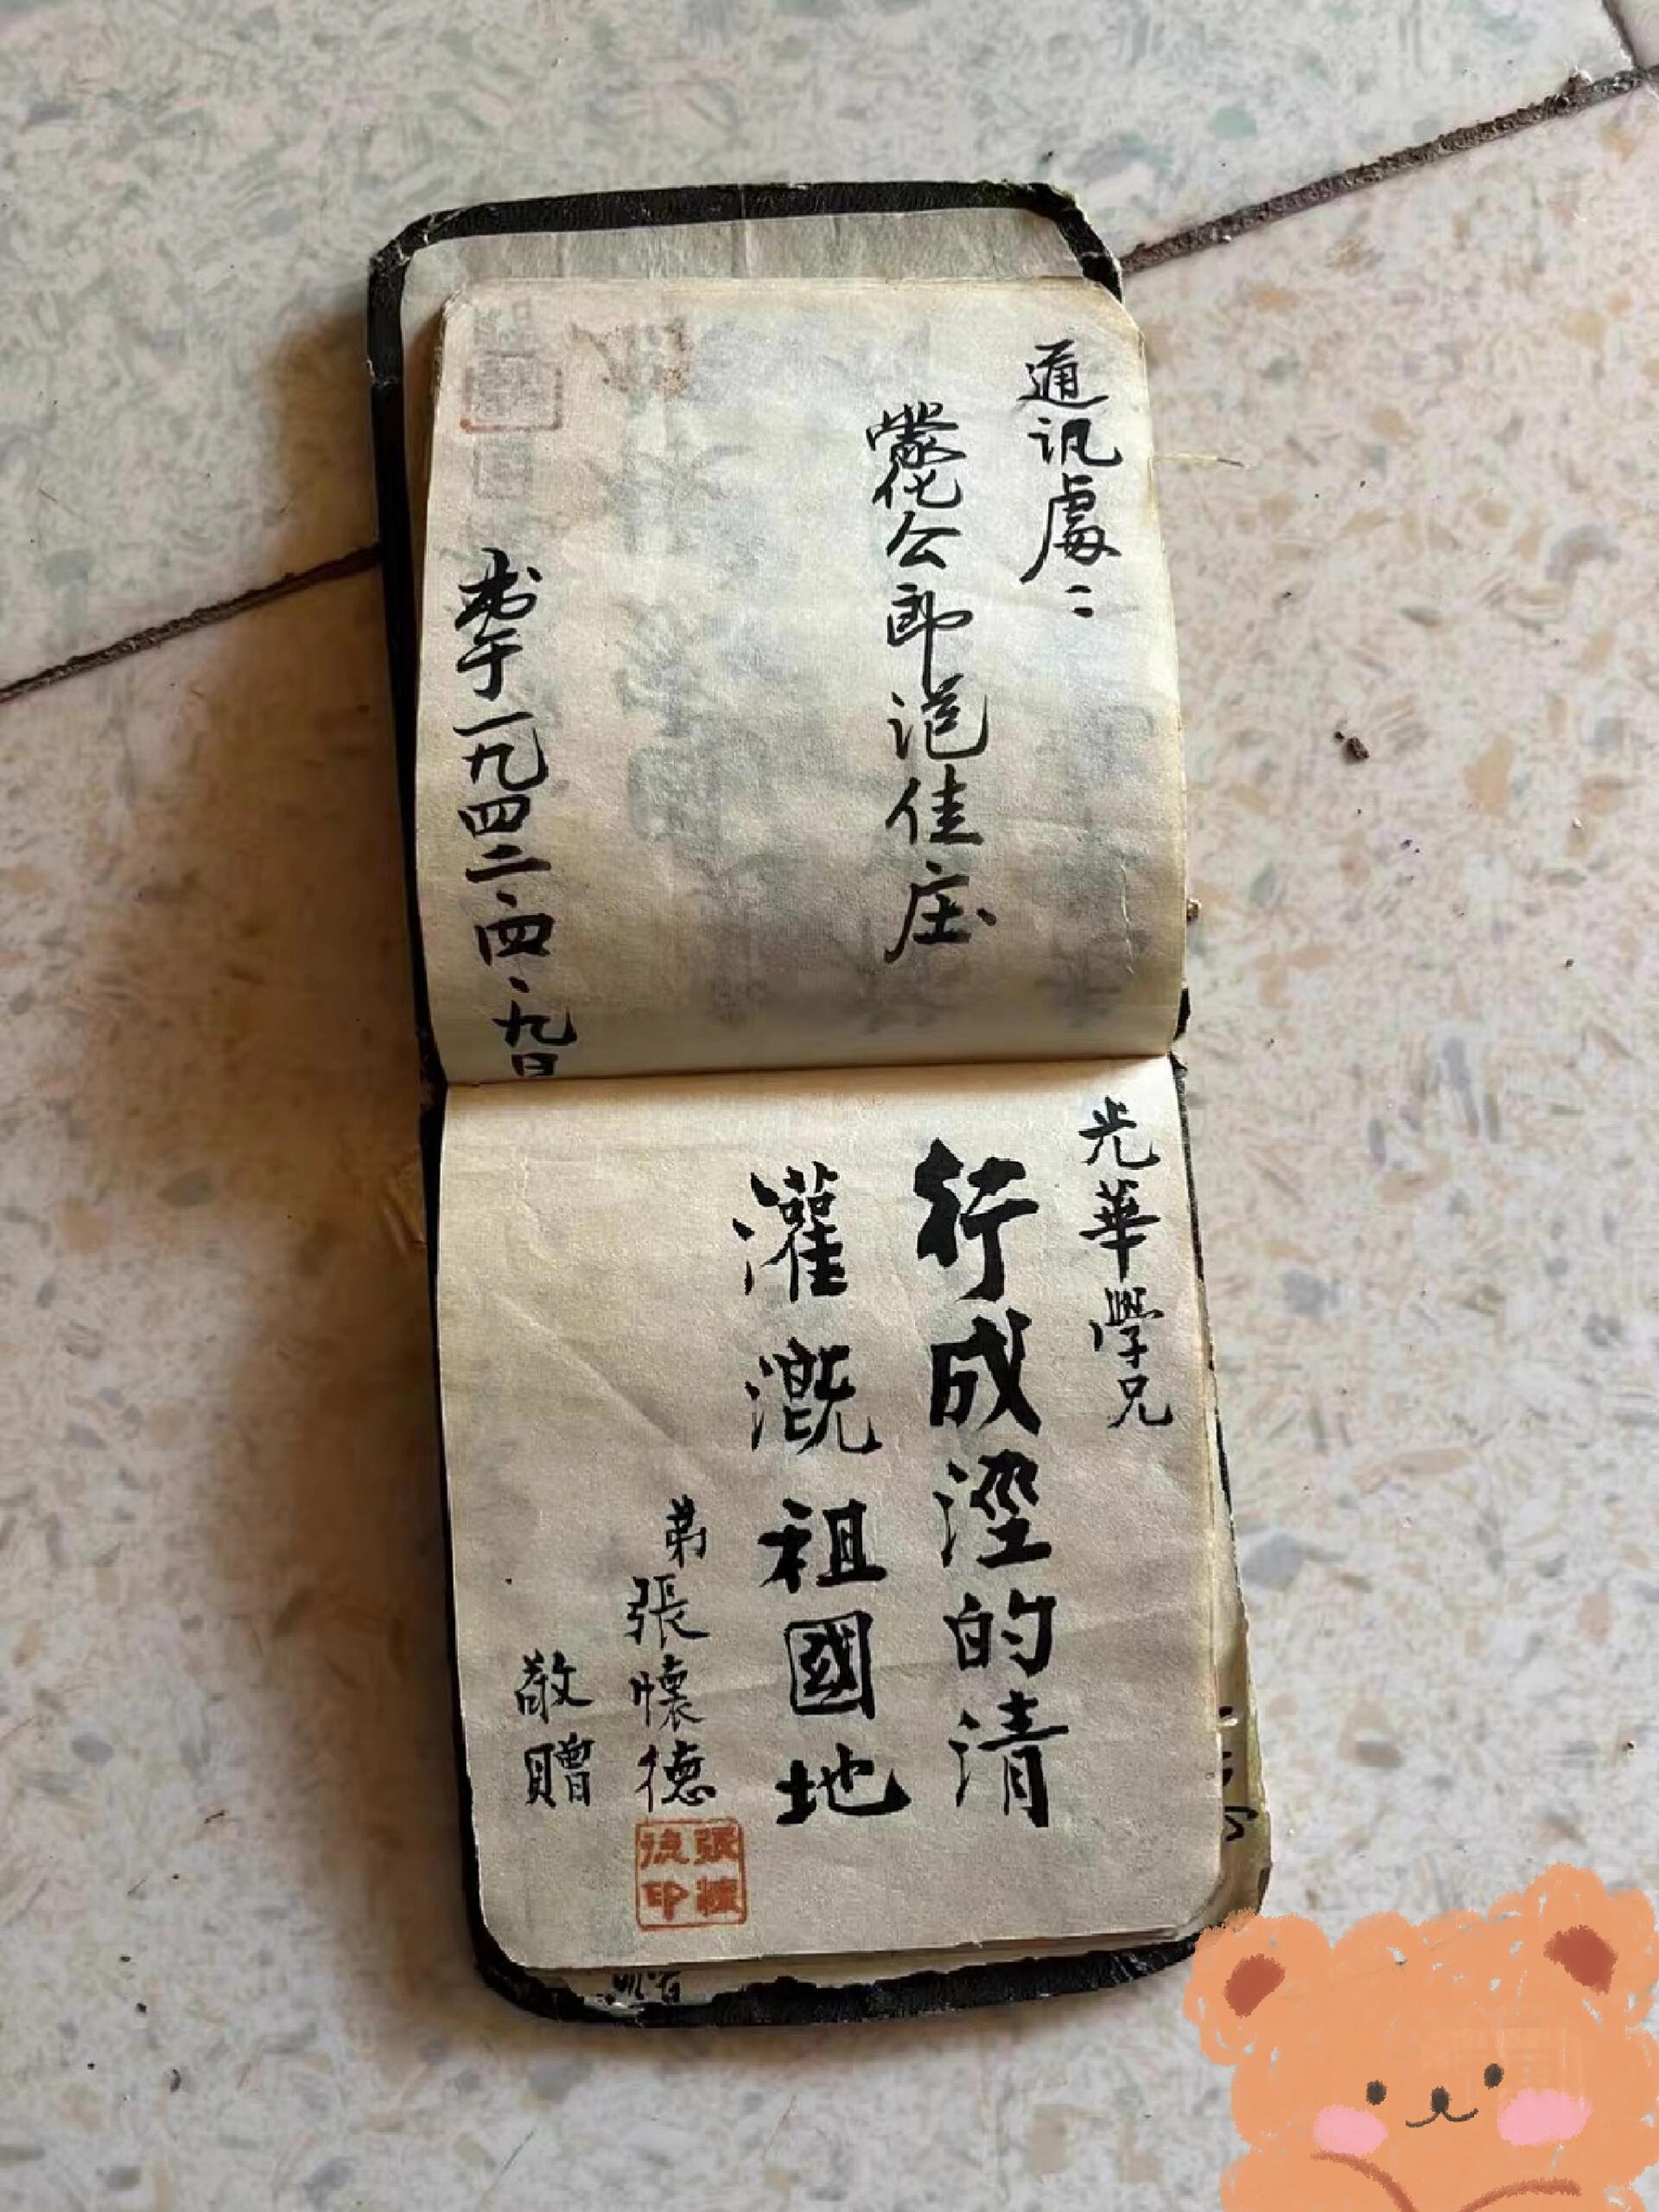 通讯處：
蒙化公郎
佳庄
于一九四二·四·九日
光華學兄
行成涇的清
灌溉祖國地
弟
張懷德
敬贈
張懷
德印